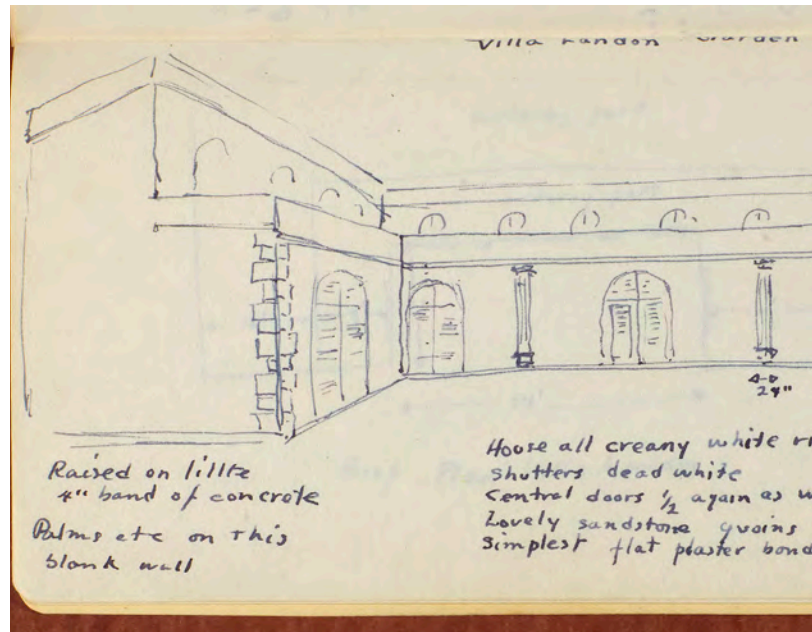 Villa Landon Garden
24"
Raised on lillte
4" band of concrete
Palms etc on this
blank wall
House all creamy white
Shutters dead white
Central doors ½ again as
Lovely sandstone quoins
Simplest flat plaster band